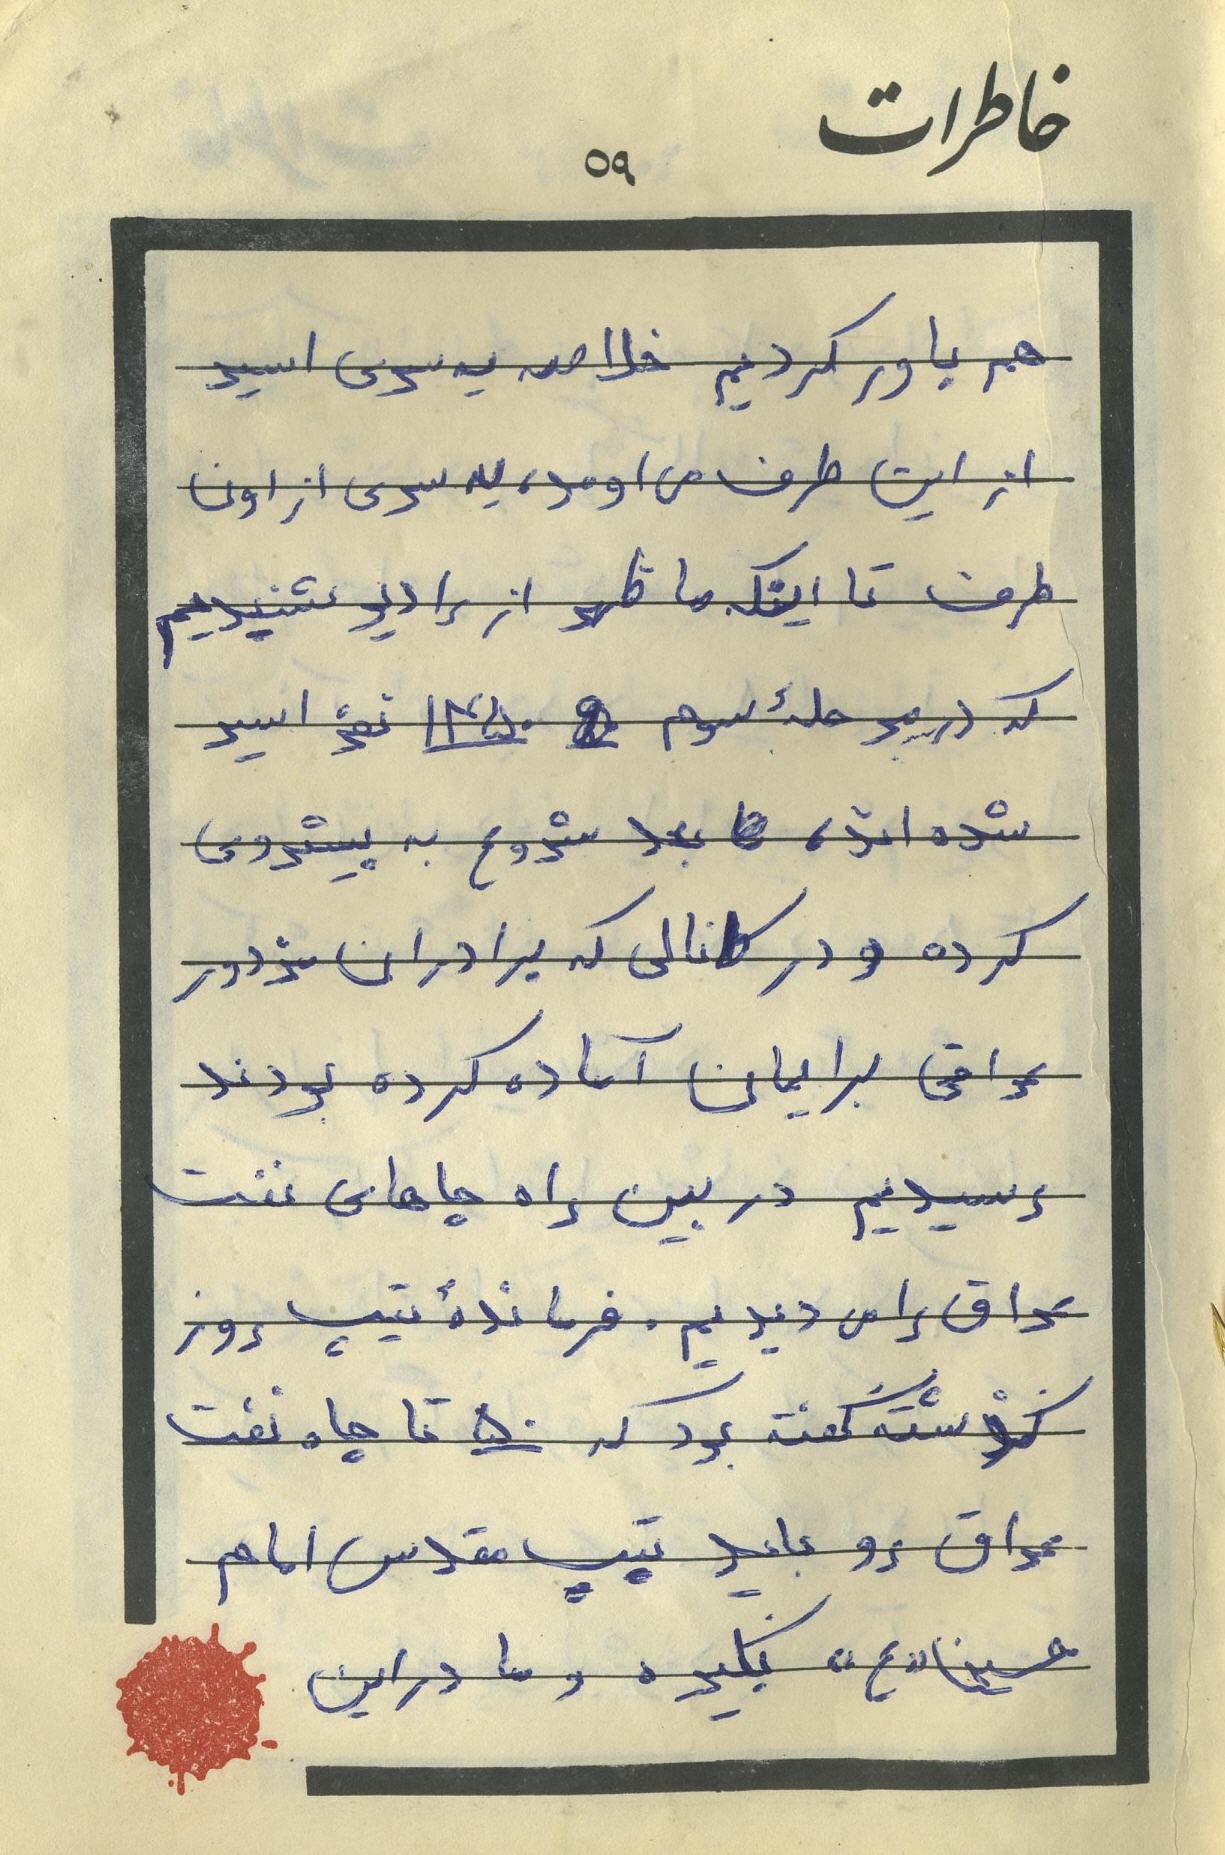 خاطرات
۵۹
هم باور کردیم خلاصه یه سری اسیر
از این طرف می اومد، یه سری از اون
طرف تا اینکه ما ظهر از رادیو شنیدیم
که در مرحلهٔ سوم ۱۴۵۰ نفر اسیر
شده اند، بعد شروع به پیشروی
کرده و در کانالی که برادران مزدور
عراقی برایمان آماده کرده بودند
رسیدیم در بین راه چاهای نفت
عراق را می دیدیم. فرماندهٔ تیپ روز
گذشته گفته بود که ۵۰ تا چاه نفت
عراق رو باید تیپ مقدس امام
حسین «ع» بگیره و ما در این